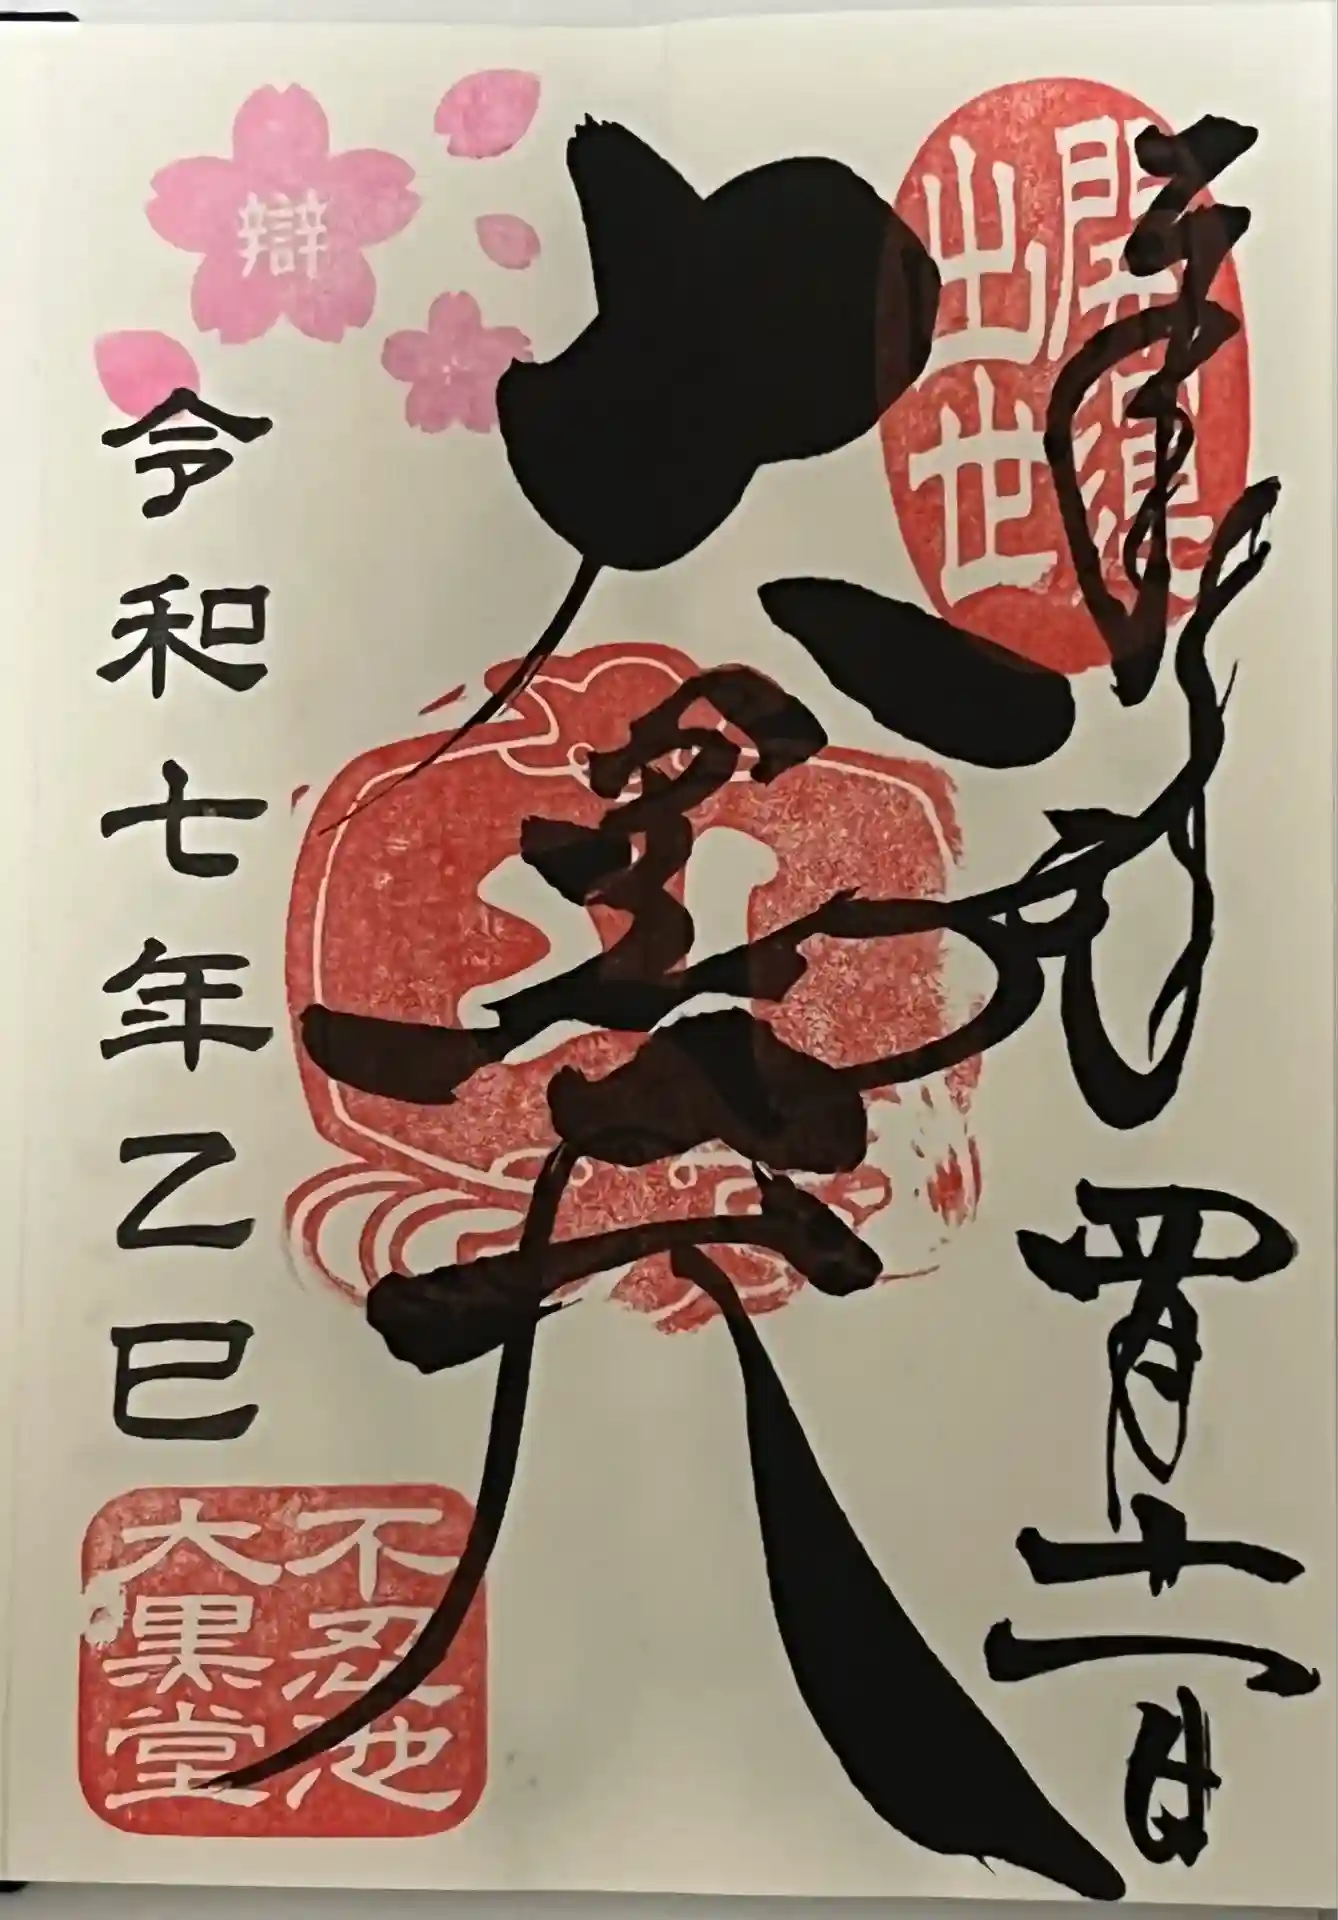 奉拝 四月十一日
開運
出世
大黒天
辯
令和七年乙巳
不忍池
大黒堂